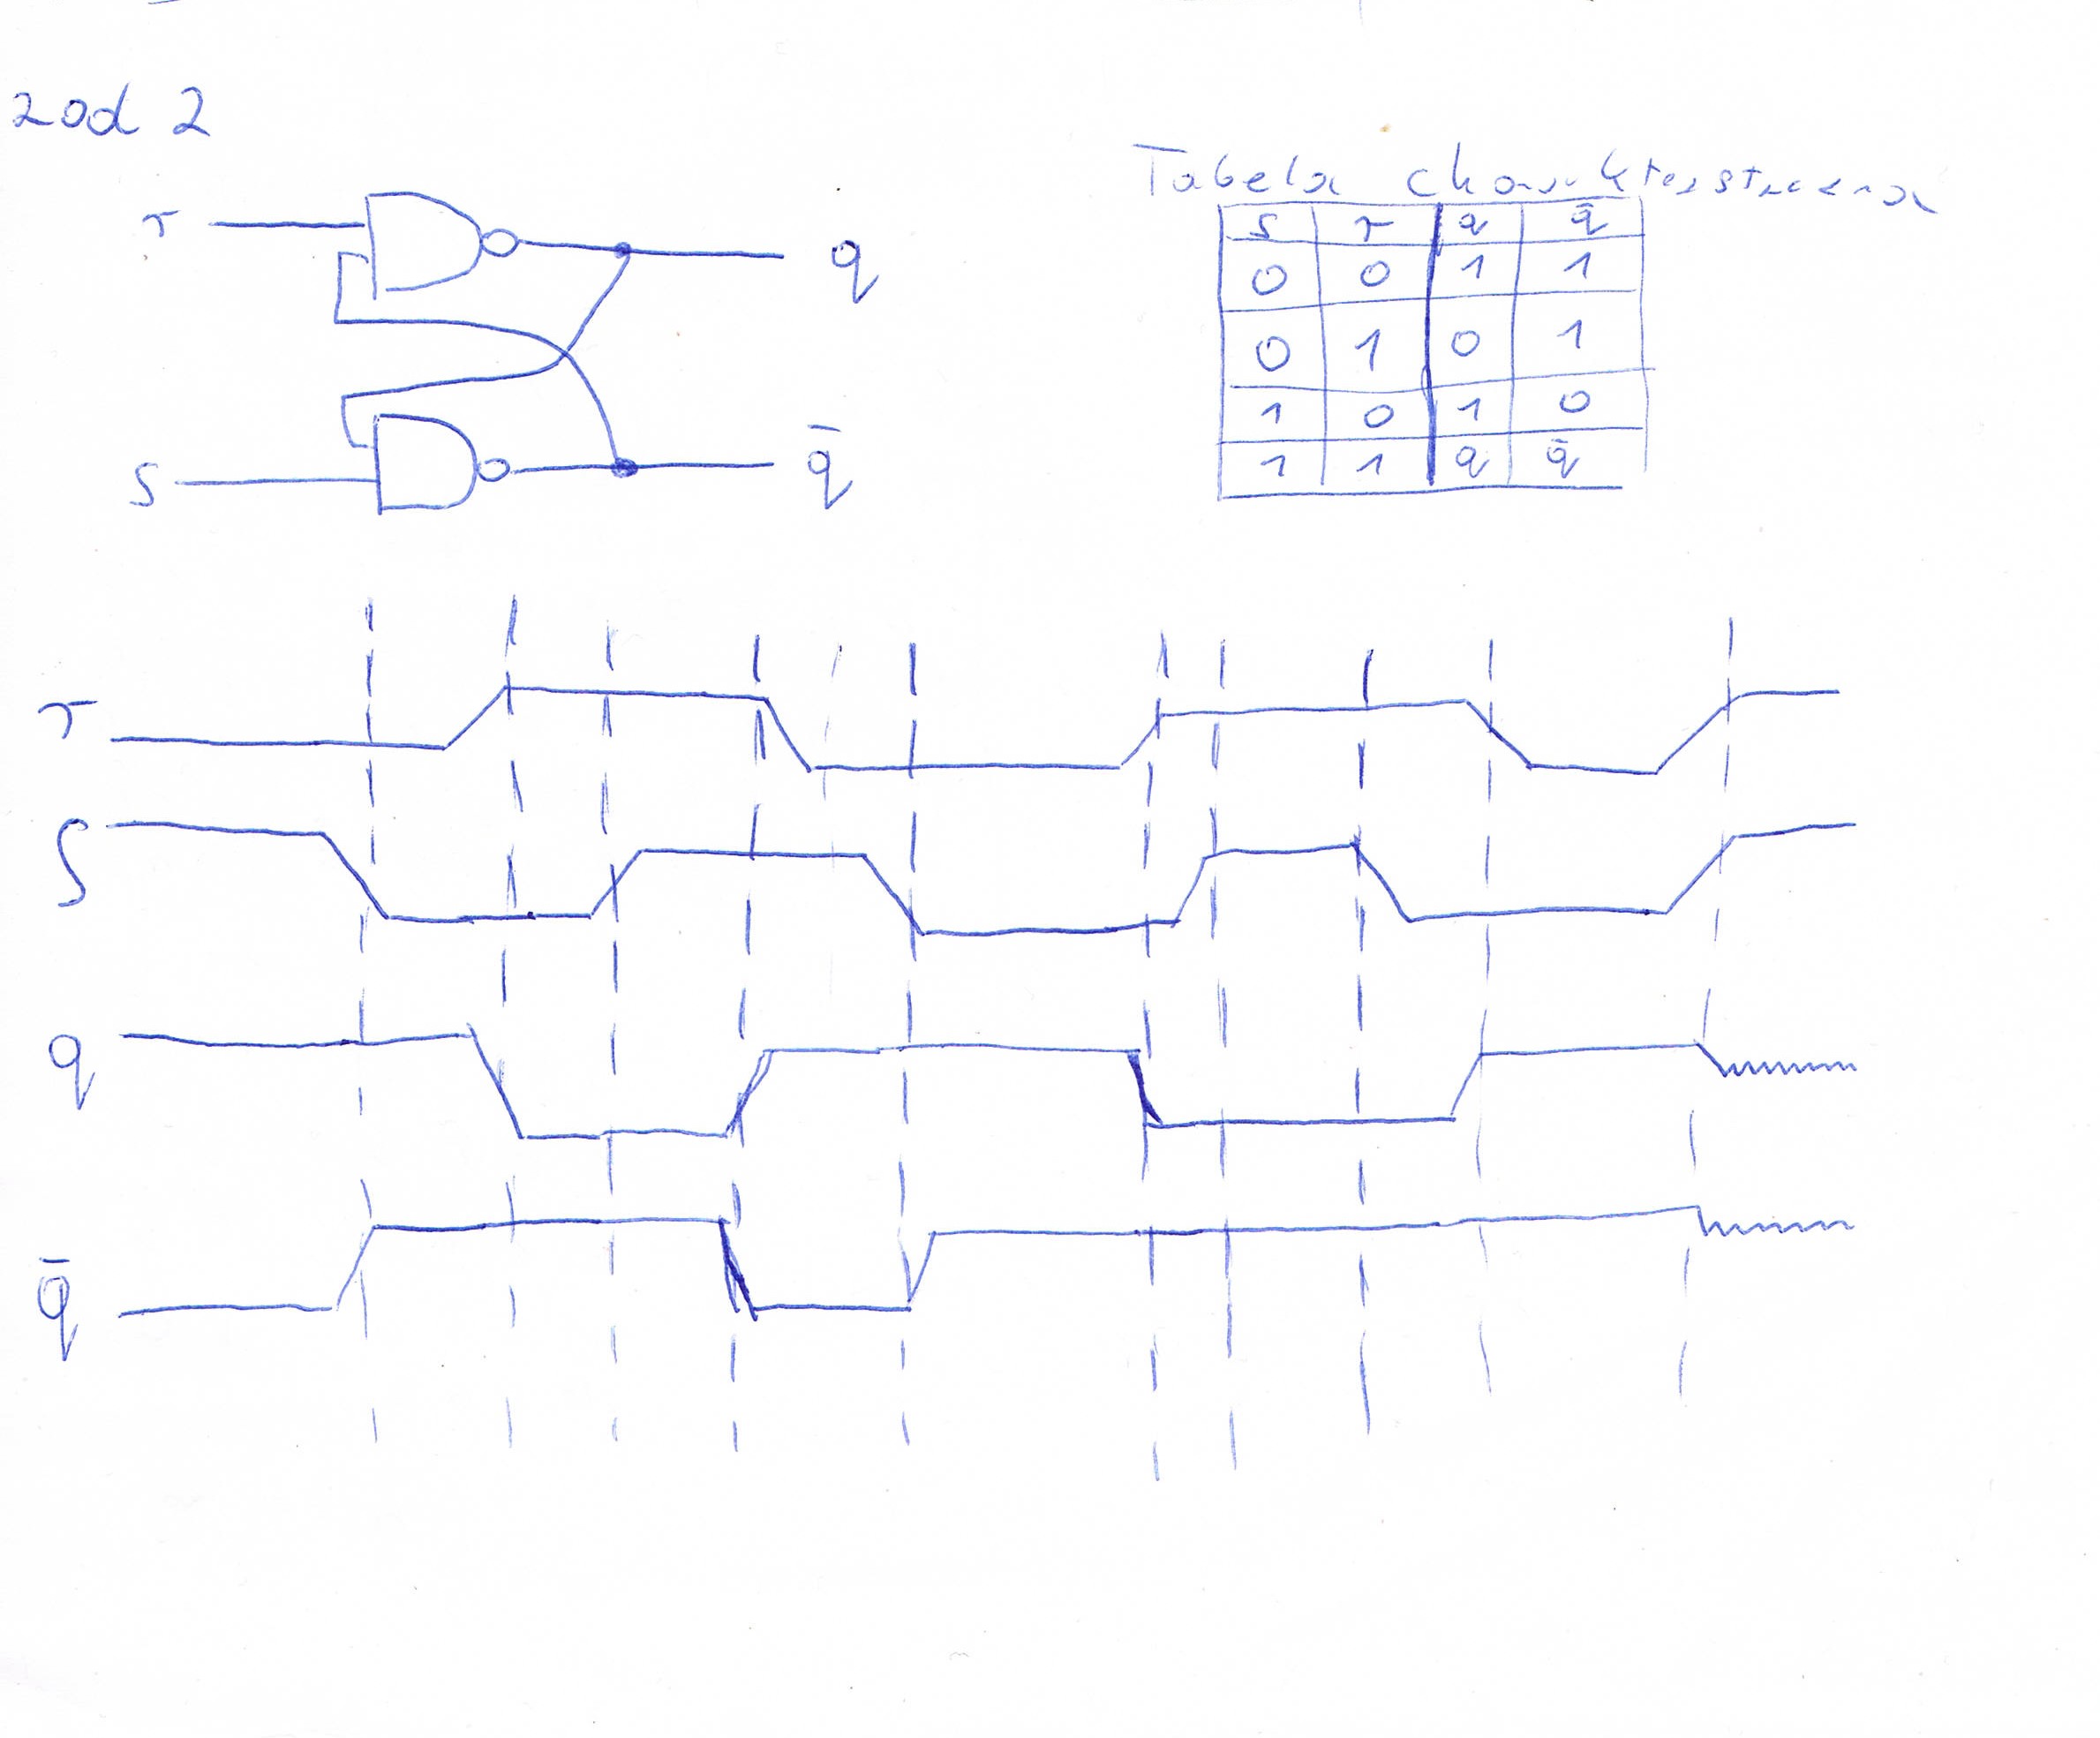 zad 2
Tabela charakterystyczna
r
q
s
q̄
s r q q̄
0 0 1 1
0 1 0 1
1 0 1 0
1 1 q q̄
r
S
q
q̄